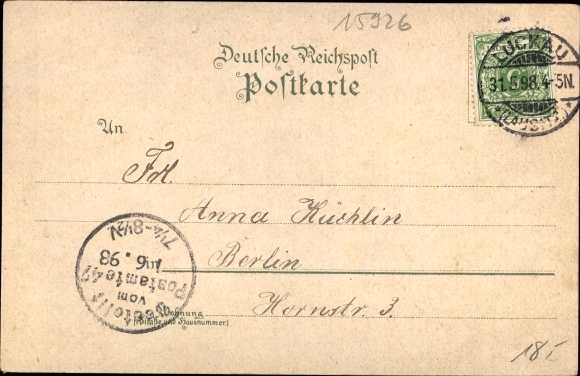 15926
Deutsche Reichspost
Postkarte
LUCKAU
31.5.98.4-5N.
*(LAUSITZ)*
An
Frl.
Anna Küchlin
Berlin
Hornstr. 3.
Wohnung
(Straße und Hausnummer)
Bestellt
vom
Postamte 47
1/6.98
7¼-8½V
18.-